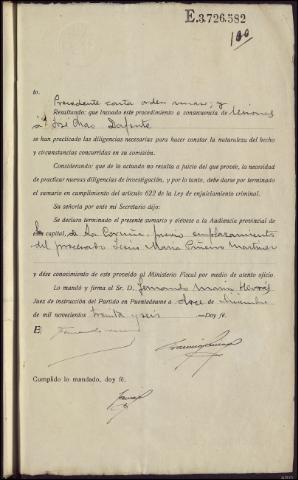 E.3.726.582
100
to.
Precedente carta orden unase, y
Resultando: que incoado este procedimiento a consecuencia de lesiones
a José Chao Dafonte
se han practicado las diligencias necesarias para hacer constar la naturaleza del hecho
y circunstancias concurridas en su comisión.
Considerando: que de lo actuado no resulta a juicio del que provée, la necesidad
de practicar nuevas diligencias de investigación, y por lo tanto, debe darse por terminado
el sumario en cumplimiento del artículo 622 de la Ley de enjuiciamiento criminal.
Su señoría por ante mi Secretario dijo:
Se declara terminado el presente sumario y elévese a la Audiencia provincial de
la capital, de La Coruña, previo emplazamiento
del procesado Jesús María Piñeiro Martínez
y dése conocimiento de este proveído al Ministerio Fiscal por medio de atento oficio.
Lo mandó y firma el Sr. D. Fernando María
Juez de instrucción del Partido en Puentedeume a doce de Diciembre
de mil novecientos treinta y seis —Doy fé.
E
Fernando
Cumplido lo mandado, doy fé.